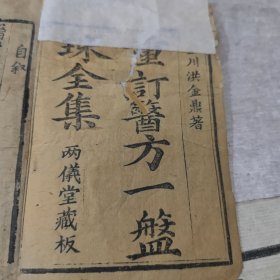 川洪金鼎著
重訂醫方一盤
珠全集
两儀堂藏板
自叙